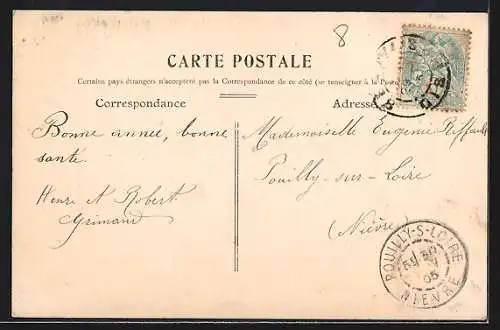 8
CARTE POSTALE
Certains pays étrangers n'acceptent pas la Correspondance de ce côté (se renseigner à la Poste)
Correspondance
Adresse
Bonne année, bonne
santé.
Henri et Robert
Grimaud
Mademoiselle Eugénie Riffault
Pouilly-sur-Loire
(Nièvre)
POUILLY-S-LOIRE
05
NIEVRE